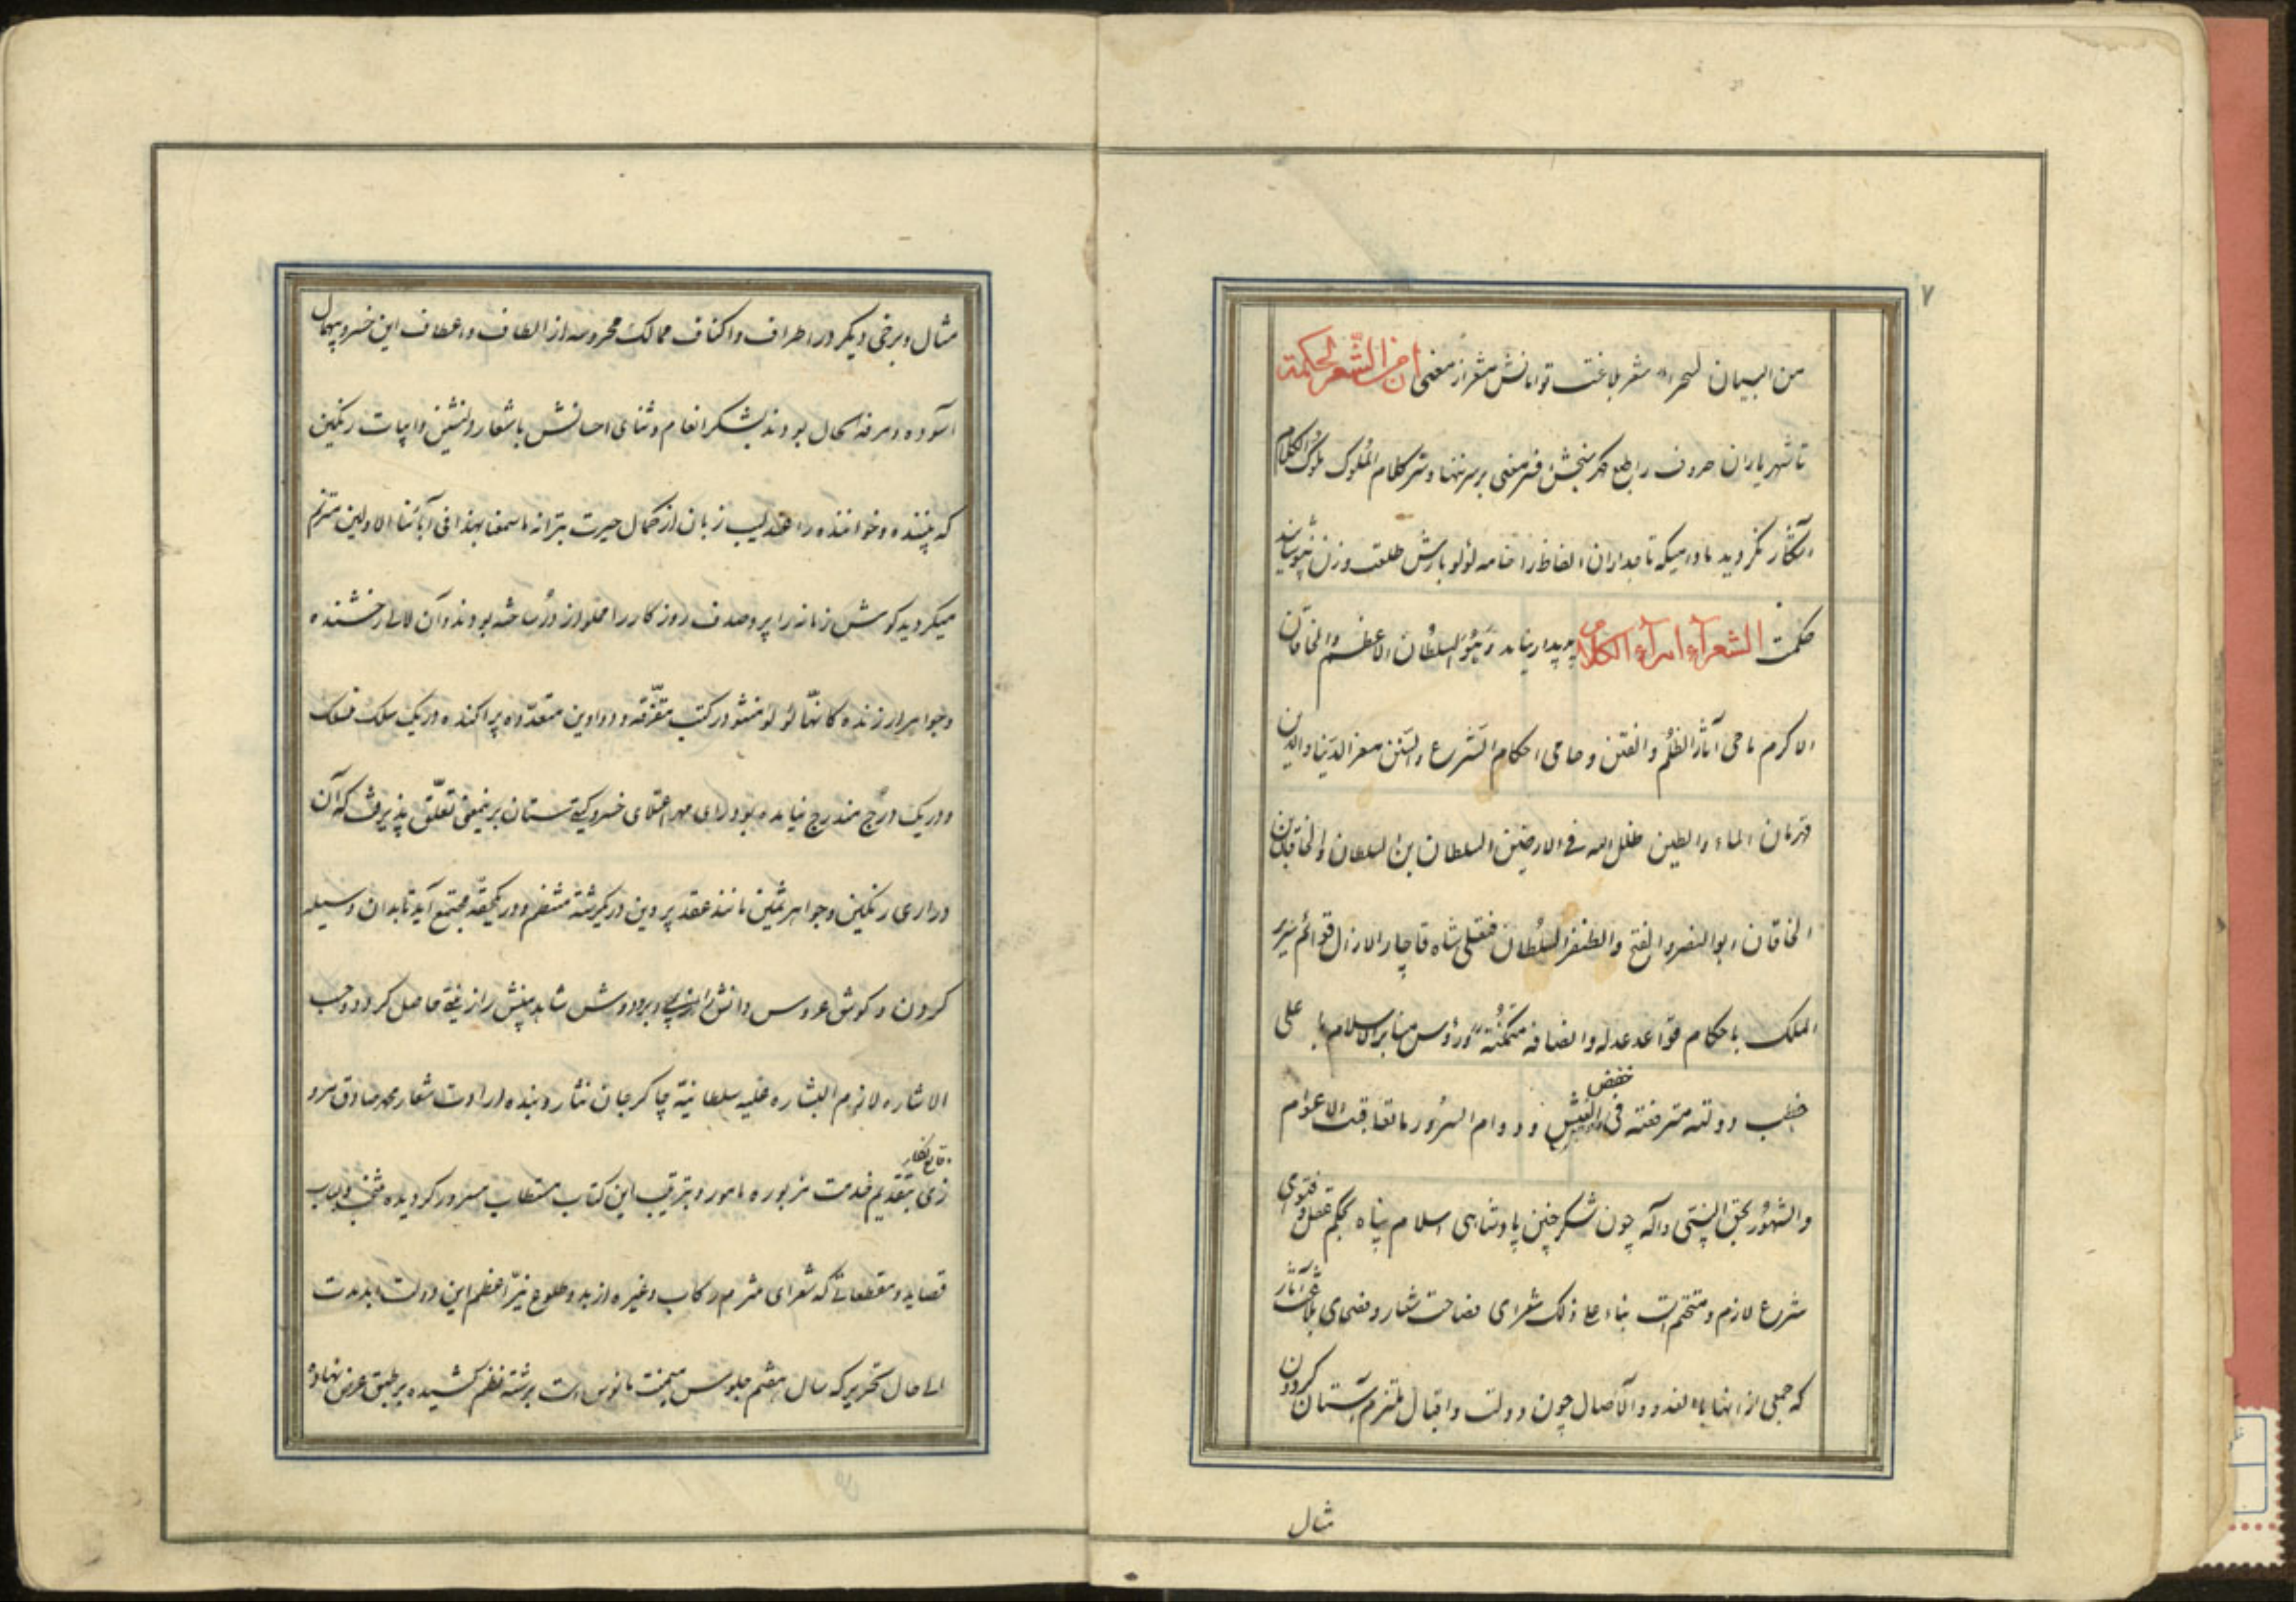 ۷
من البیان لسحرا شعر بلاغت توامانش مشعر از معنی ان من الشّعر لحکمة
تا شهریاران حروف را طبع گهر سنجش افسر معنی بر سر ننهاد و سر کلام الملوک ملوک الکلام
آشکار نگردید مادامیکه تاجداران الفاظ را خامه لؤلؤ بارش خلعت وزن نپوشانید
حکمت الشعرآء امرآء الکلام پدیدار نیامد و هُوَ السلطان الاعظم والخاقان
الاکرم ماحی آثار الظلم والفتن و حامی احکام الشرع والسنن معز الدنیا والدین
قهرمان الماء والطین ظل الله فی الارضین السلطان بن السلطان والخاقان بن
الخاقان ابوالنصر والفتح والظفر السلطان فتحعلی شاه قاجار لازال قوائم سریر
الملک باحکام قواعد عدله وانصافه متمکنة ورؤس منابر الاسلام با علی
خطب دولته مترفعة فی خفض العیش و دوام السرور ما تعاقبت الاعوام
والشهور بحق النبی وآله چون شکر چنین پادشاهی اسلام پناه بحکم عقل و فتوی
شرع لازم و متحتم است بناء علی ذلک شعرای فصاحت شعار و فصحای بلاغت آثار
که جمعی از انها بالغدو والآصال چون دولت و اقبال ملتزم آستان گردون
مثال
مثال و برخی دیگر در اطراف و اکناف ممالک محروسه از الطاف و اعطاف این خسرو بیهمال
آسوده و مرفه الحال بودند بشکر انعام و ثنای احسانش باشعار دلنشین و ابیات رنگین
که بیننده و خواننده را عندلیب زبان از کمال حیرت بترانه ما سمعنا بهذا فی آبائنا الاولین مترنم
میگردید گوش زمانه را پر و صدف روزگار را مملو از در ساخته بودند و آن لالی رخشنده
و جواهر ارزنده کانها لؤلؤ منثور در کتب متفرّقه و دواوین متعدّده پراکنده در یک سلک منسلک
و در یک درج مندرج نیامده بود رای مهر اعتلای خسرو گیتی ستان برینمعنی تعلّق پذیرفت که آن
دراری رنگین و جواهر ثمین مانند عقد پروین در یکرشته منتظم و در یکحقّه مجتمع آید تا بدان وسیله
گردن و گوش عروس دانش را زیبی و بر و دوش شاهد بینش را زینتی حاصل گردد و حسب
الاشاره لازم البشاره علیه سلطانیّه چاکر جان نثار و بنده ارادت شعار محمد صادق مرو
زی وقایع نگار بتقدیم خدمت مزبوره مامور و بترتیب این کتاب مستطاب مسرور گردیده منتخب و لباب
قصاید و مقطعاتی که شعرای ملتزم رکاب و غیره از بدو طلوع نیّر اعظم این دولت ابد مدت
الی حال تحریر که سال هشتم جلوس میمنت مانوس است برشته نظم کشیده بر طبق عرض نهاده